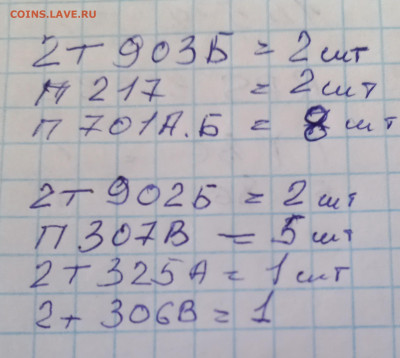 COINS.LAVE.RU
2Т903Б = 2 шт
П 217 = 2 шт
П 701А.Б = 8 шт
2Т902Б = 2 шт
П 307В = 5 шт
2Т325А = 1 шт
2т 306В = 1